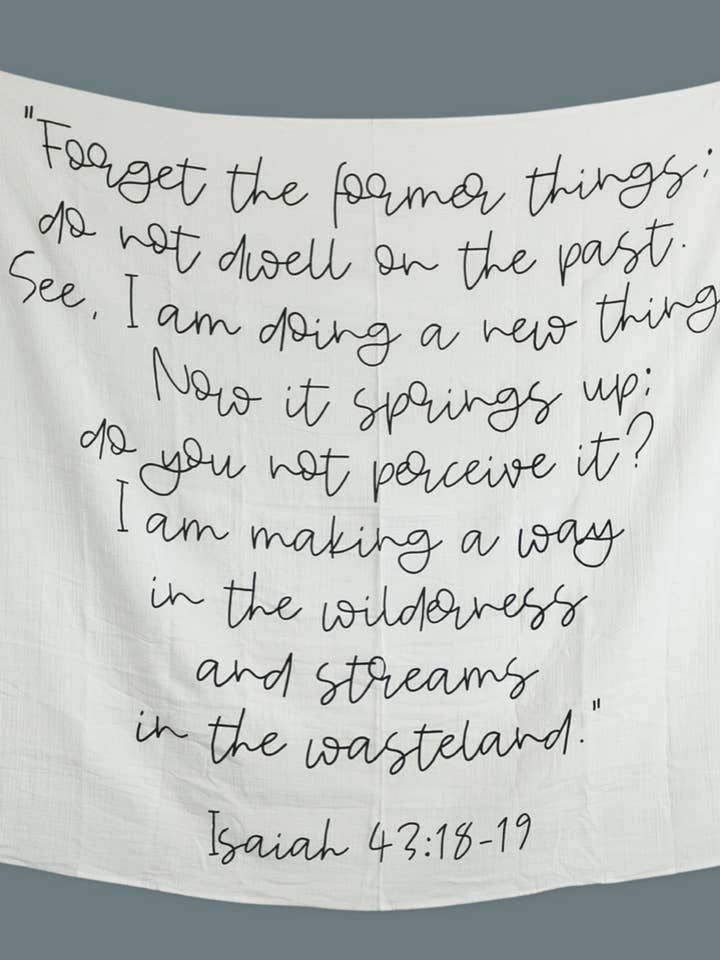 "Forget the former things;
do not dwell on the past.
See, I am doing a new thing
Now it springs up;
do you not perceive it?
I am making a way
in the wilderness
and streams
in the wasteland."
Isaiah 43:18-19